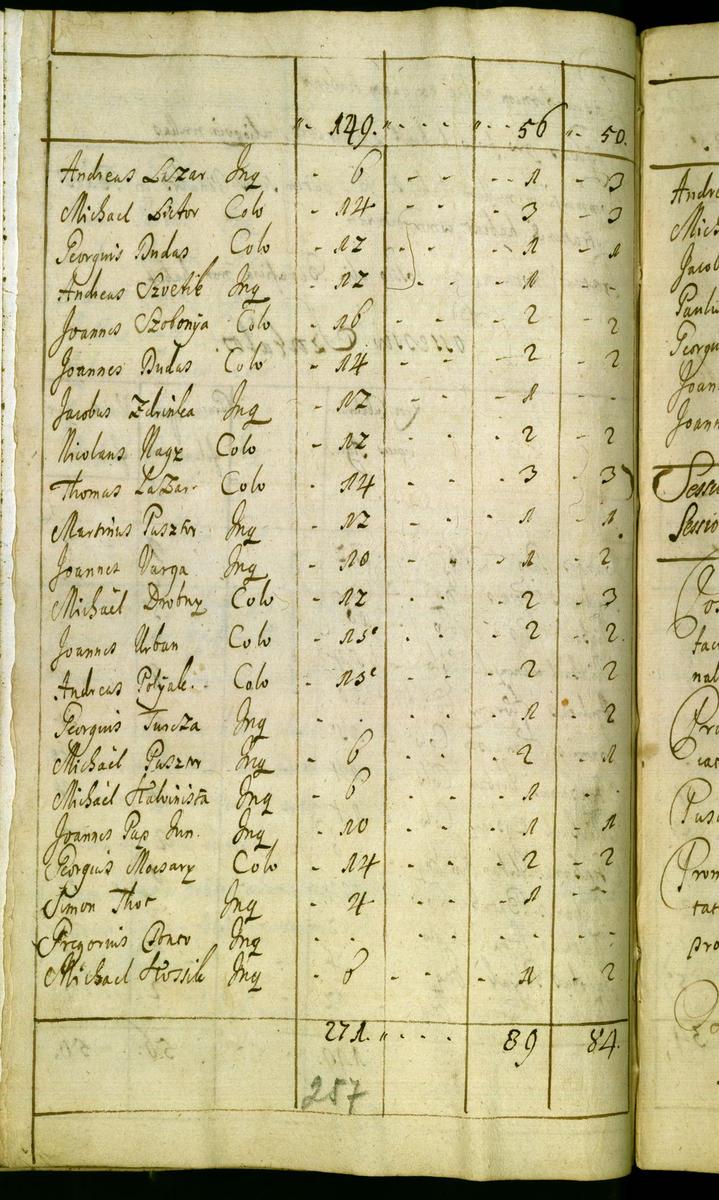 "- 149. "- - - "- 56 "- 50.
Andreas Lazar Inq - 6 - - - 1 - 3
Michael Lictor Colo - 14 - - - 3 - 3
Georgius Dudas Colo - 12 - - - 1 - 1
Andreas Szvetik Inq - 12 - - - 1 - -
Joannes Szobonya Colo - 16 - - - 2 - 2
Joannes Dudas Colo - 14 - - - 2 - 2
Jacobus Zdrinka Inq - 12 - - - 1 - -
Nicolaus Nagy Colo - 12 - - - 2 - 2
Thomas Lazar Colo - 14 - - - 3 - 3
Martinus Paszter Inq - 12 - - - 1 - 1
Joannes Varga Inq - 10 - - - 1 - 2
Michaël Drobny Colo - 12 - - - 2 - 3
Joannes Urban Colo - 15 - - - 2 - 2
Andreas Polyak Colo - 13 - - - 2 - 2
Georgius Turcza Inq - - - - - 1 - 2
Michaël Paszter Inq - 6 - - - 2 - 1
Michaël Kalvinista Inq - 6 - - - 1 - -
Joannes Pap Jun. Inq - 10 - - - 1 - 1
Georgius Mocsary Colo - 14 - - - 2 - 2
Simon Thot Inq - 4 - - - 1 - -
Gregorius Inq - - - - - - - -
Michael Kossik Inq - 6 - - - 1 - 2
271. "- - - 89 84.
257